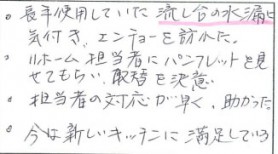 。長年使用していた流し台の水漏に
気付き、エンチョーを訪れた。
。リホーム担当者にパンフレットを見
せてもらい、取替を決意
。担当者の対応が早く、助かった
。今は新しいキッチンに満足している